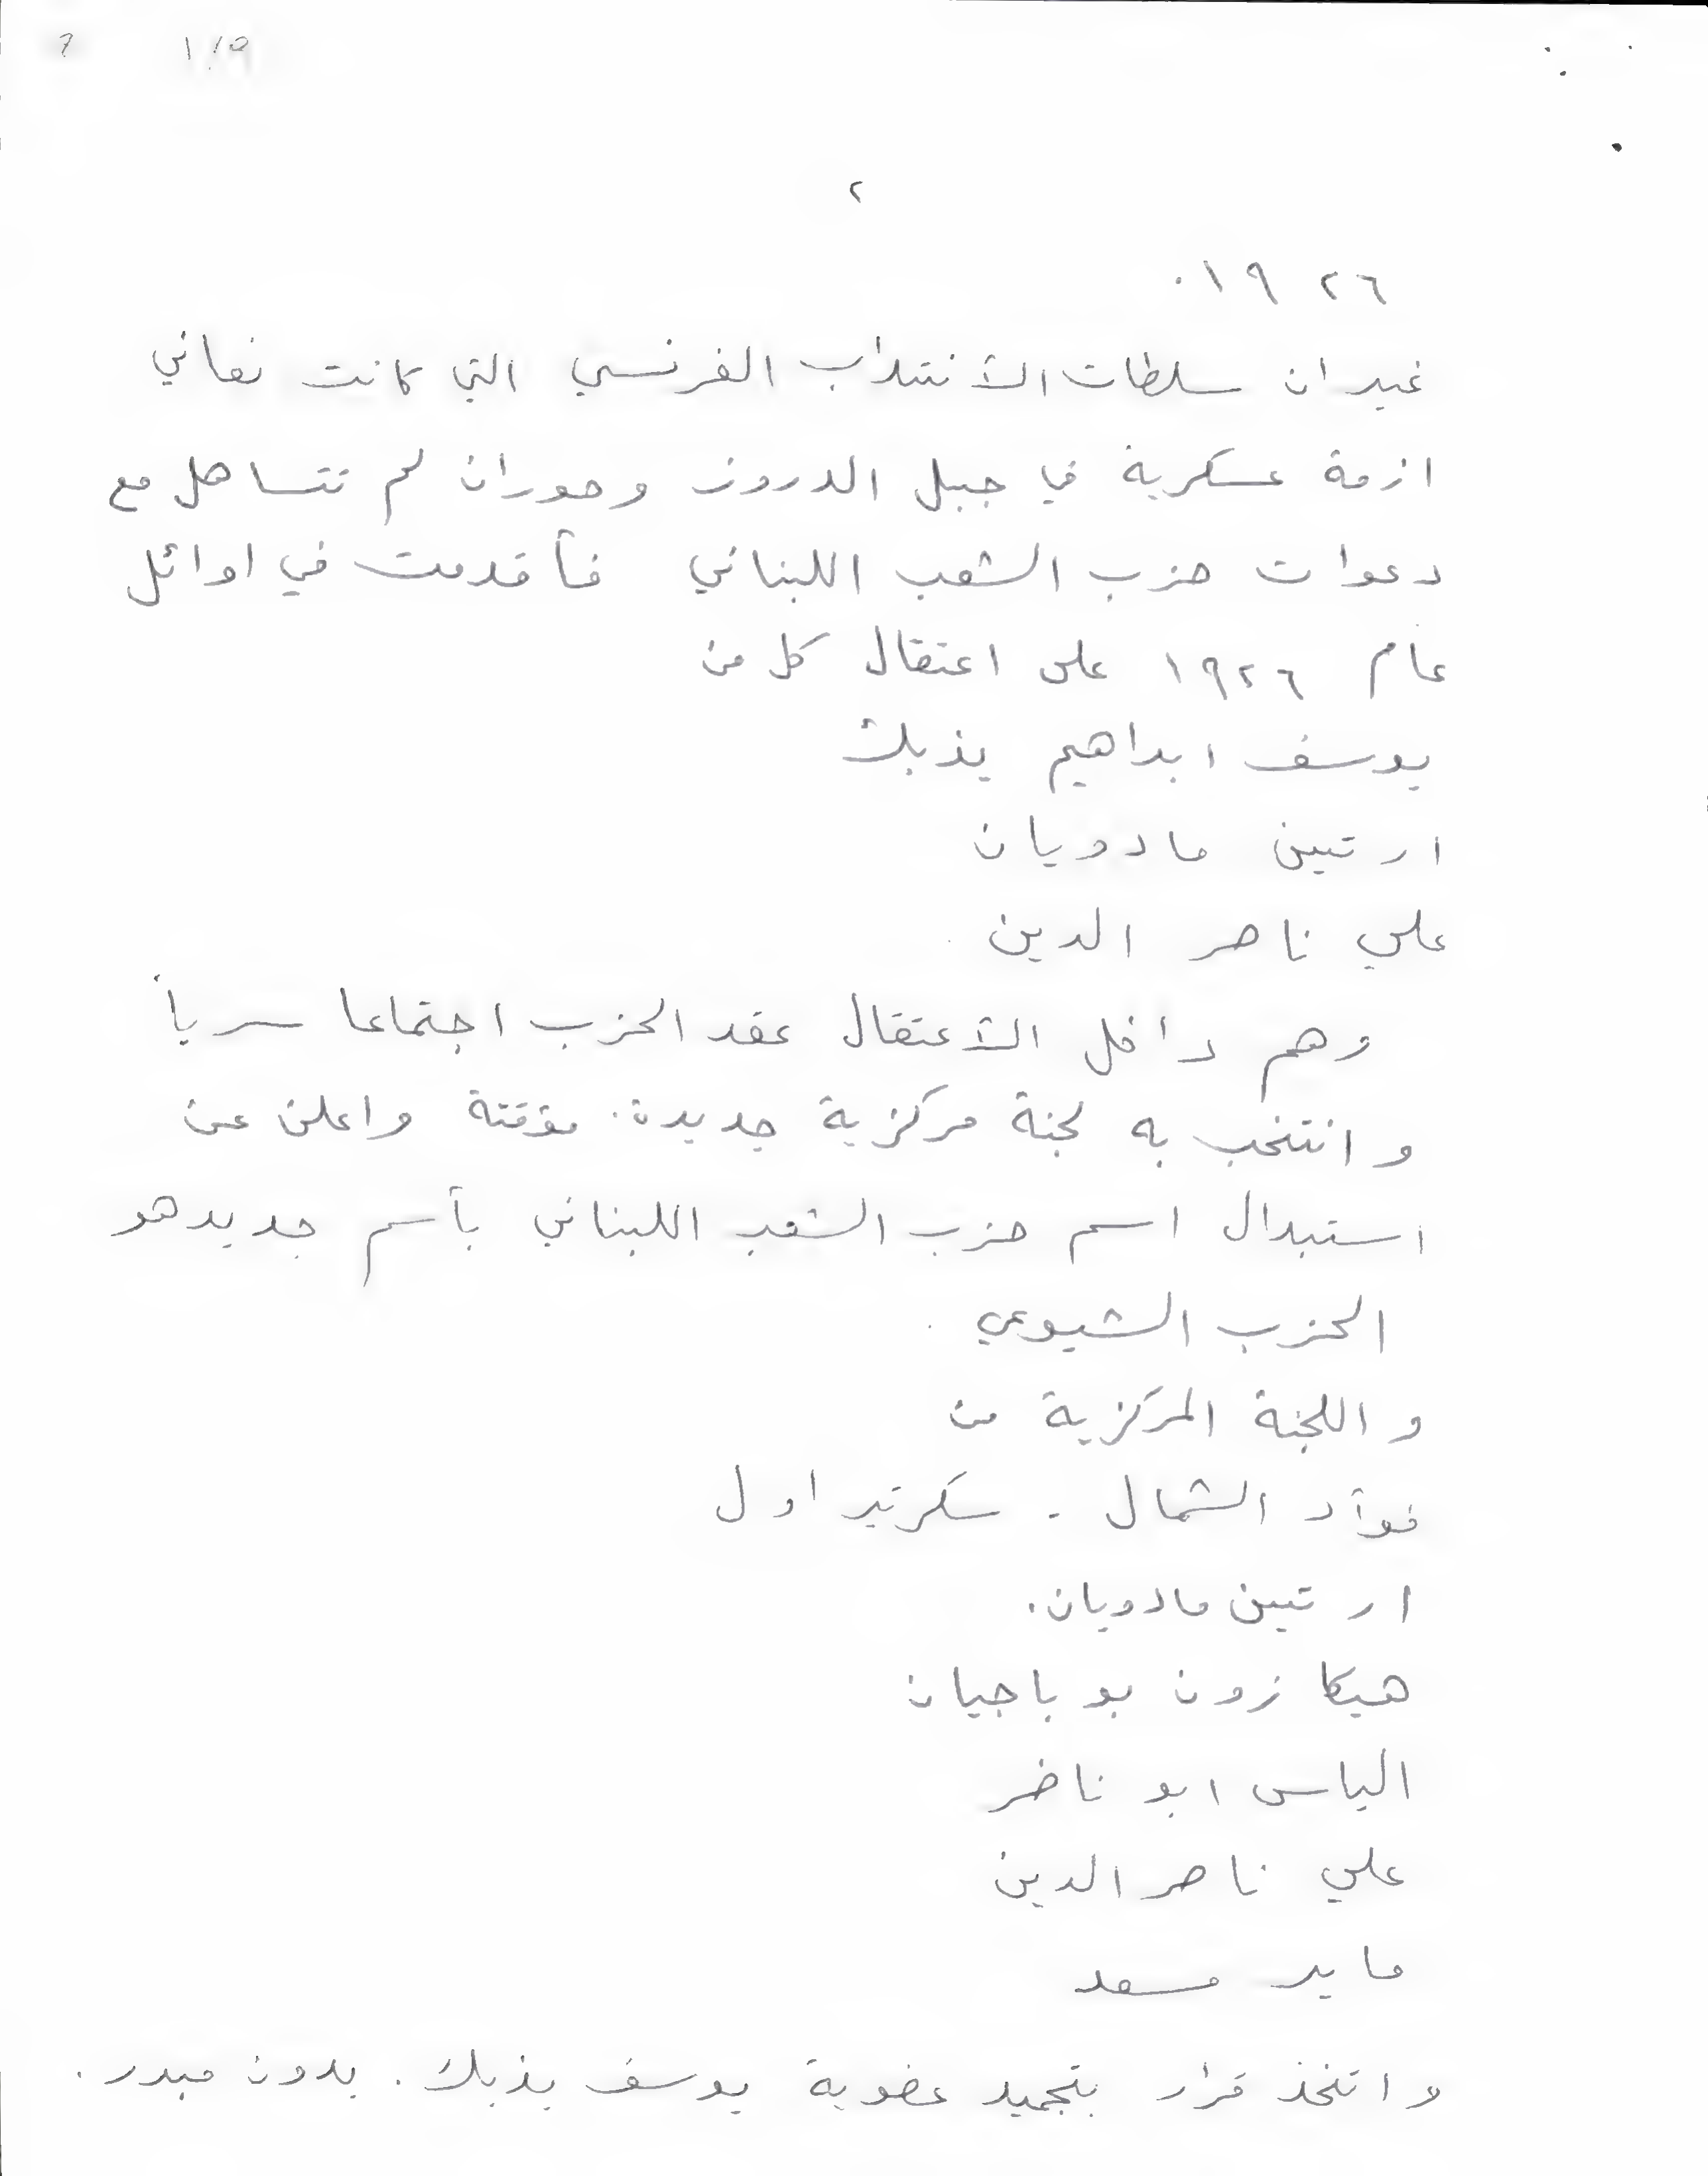 ٢
١٩٢٦.
غير ان سلطات الأنتداب الفرنسي التي كانت تعاني
ازمة عسكرية في جبل الدروز وحوران لم تتساهل مع
دعوات حزب الشعب اللبناني فأقدمت في اوائل
عام ١٩٢٦ على اعتقال كل من
يوسف ابراهيم يذبك
ارتين مادويان
علي ناصر الدين
وهم داخل الأعتقال عقد الحزب اجتماعا سرياً
وانتخب به لجنة مركزية جديدة مؤقتة واعلن عن
استبدال اسم حزب الشعب اللبناني بأسم جديد هو
الحزب الشيوعي.
واللجنة المركزية من
فوأد الشمالي - سكرتير اول
ارتين مادويان.
هيكازون بوياجيان
الياس ابو ناضر
علي ناصر الدين
فايد مسعد
واتخذ قرار بتجميد عضوية يوسف يذبك. بدون مبرر.